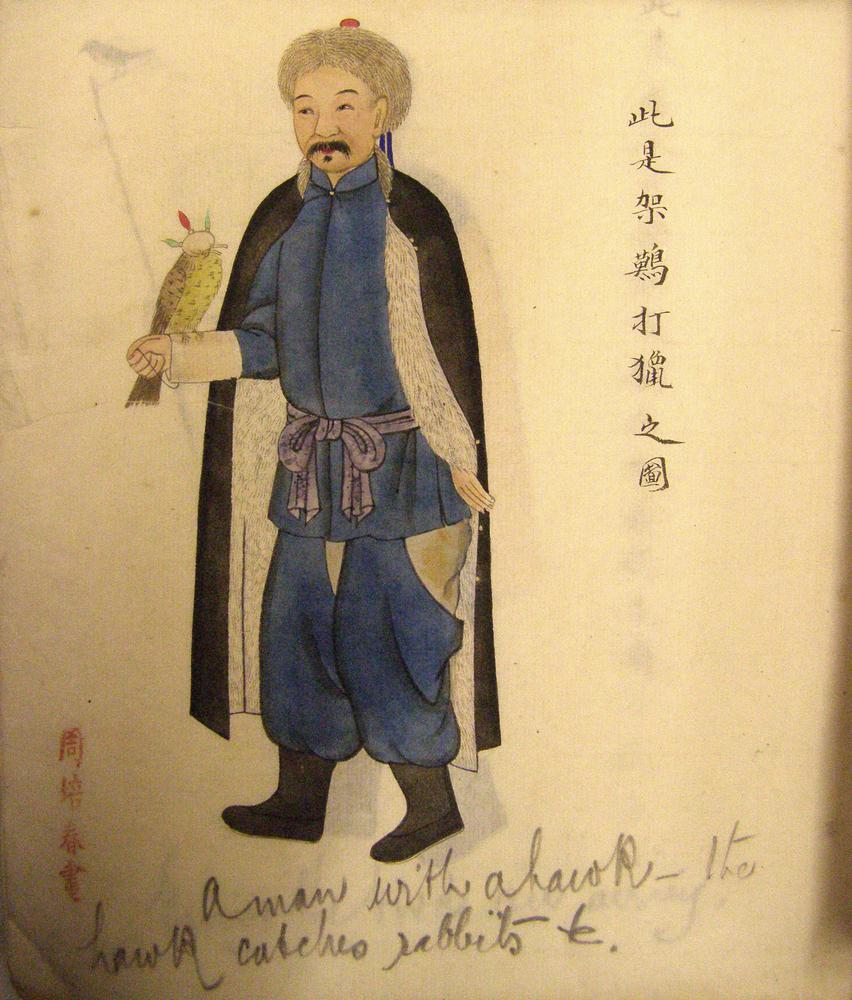 此是架鷄打獵之圖
周培春畫
A man with a hawk – the
hawk catches rabbits &c.